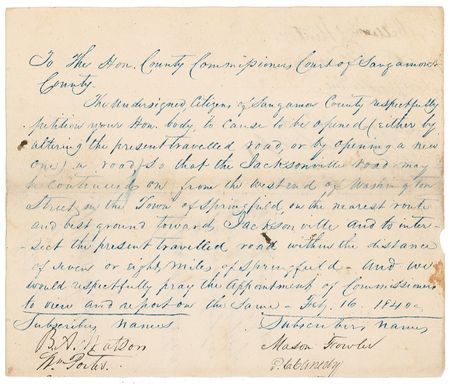 To The Hon. County Commissioners Court of Sangamon
County.
The Undersigned Citizens of Sangamon County respectfully
petition your Hon. body, to cause to be opened (either by
altering the present travelled road, or by opening a new
one) a road, so that the Jacksonville road may
be continued on from the West end of Washington
Street, in the Town of Springfield, on the nearest route
and best ground towards Jacksonville and to inter-
sect the present travelled road within the distance
of seven or eight miles of Springfield - And we
would respectfully pray the appointment of Commissioners
to view and report on the Same - Feby. 16. 1840
Subscribers Names. Subscribers Names
B. A. Watson Mason Fowler
Wm Porter P. C. Canedy